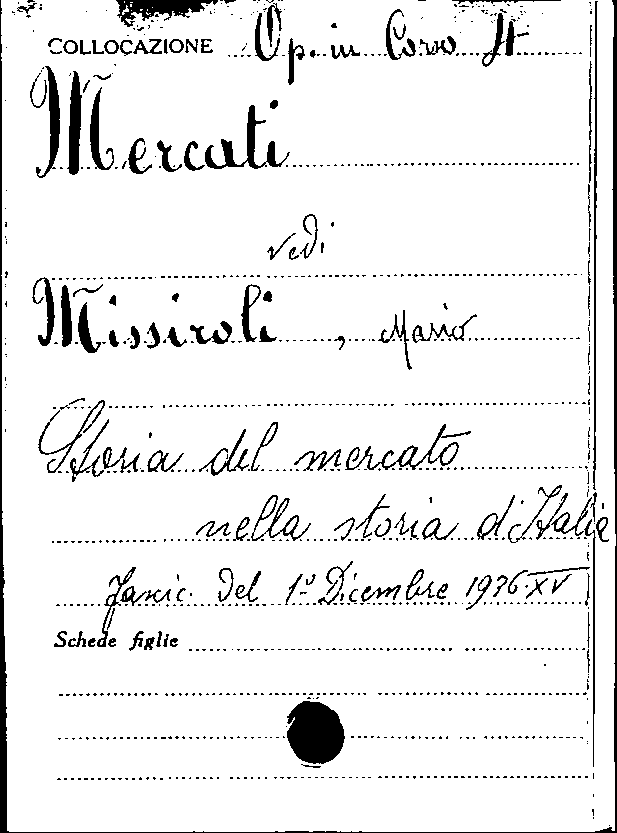 COLLOCAZIONE Op. in Corso It
Mercati
vedi
Missiroli, Mario
Storia del mercato
nella storia d'Italia
Fasic. del 1º Dicembre 1936 XV
Schede figlie